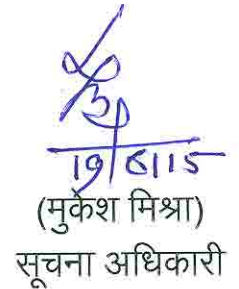 19/6/15
(मुकेश मिश्रा)
सूचना अधिकारी